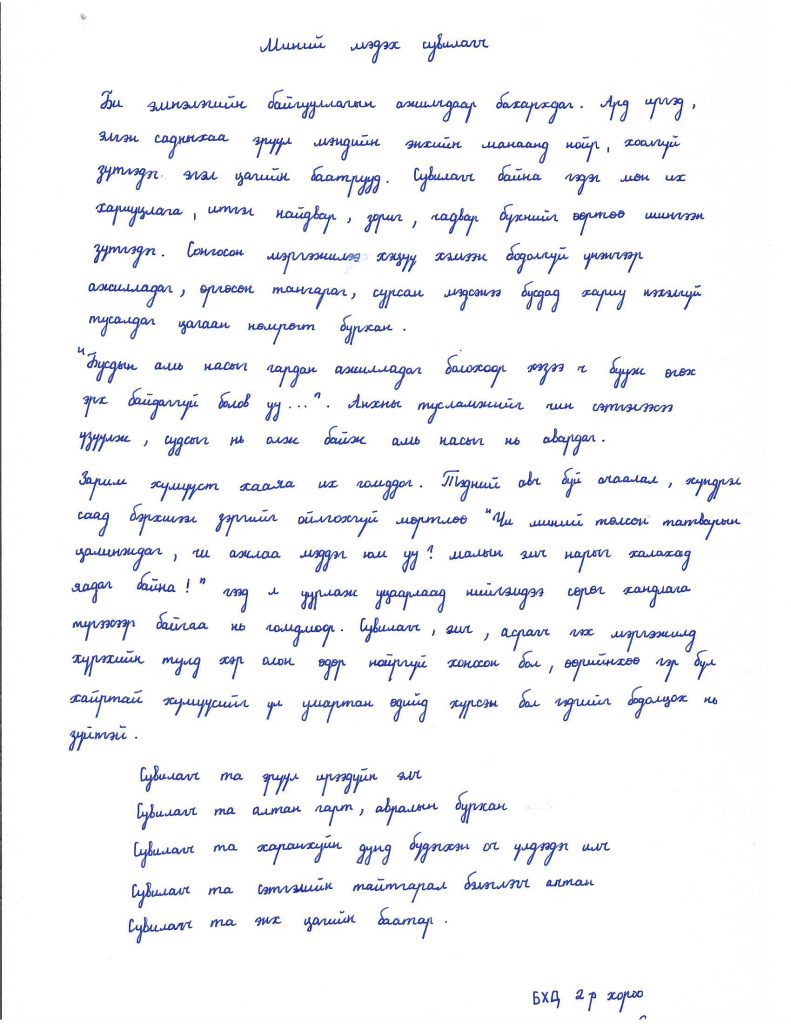 Миний мэдэх сувилагч
Би эмнэлэгийн байгууллагын ажилчдаар бахархдаг. Ард иргэд,
элгэн садныхаа эрүүл мэндийн энхийн манаанд нойр, хоолгүй
зүтгэдэг эгэл цагийн баатрууд. Сувилагч байна гэдэг мөн их
хариуцлага, итгэл найдвар, зориг, чадвар бүхнийг өөртөө шингээн
зүтгэдэг. Сонгосон мэргэжилээ хэцүү хэмээн бодолгүй үнэнчээр
ажилладаг, өргөсөн тангараг, сурсан мэдсэнээ бусдад хариу нэхэлгүй
тусалдаг цагаан нөмрөгт бурхан.
"Бусдын амь насыг гардан ажилладаг болохоор хэзээ ч бууж өгөх
эрх байдаггүй болов уу...". Анхны тусламжийг чин сэтгэлээсээ
үзүүлж, судсыг нь олж байж амь насыг нь авардаг.
Зарим хүмүүст хааяа их гомддог. Тэдний авч буй ачаалал, хүндрэл
саад бэрхшээл зэргийг ойлгохгүй мөртлөө "Чи миний төлсөн татварын
цалинждаг, чи ажлаа мэддэг юм уу? малын эмч нарыг халахад
яадаг байна!" гээд л уурлаж уцаарлаад нийгэмдээ сөрөг хандлага
түгээсээр байгаа нь гомдмоор. Сувилагч, эмч, асрагч гэх мэргэжилд
хүрэхийн тулд хэр олон өдөр нойргүй хонсон бол, өөрийнхөө гэр бүл
хайртай хүмүүсийг үл умартан өдийд хүрсэн бол гэдгийг бодолцох нь
зүйтэй.
Сувилагч та эрүүл ирээдүйн элч
Сувилагч та алтан гарт, авралын бурхан
Сувилагч та харанхуйн дунд бүдэгхэн оч үлдээдэг илч
Сувилагч та сэтгэлийн тайтгарал бэлэглэгч алтан
Сувилагч та энх цагийн баатар.
БХД 2 р хороо